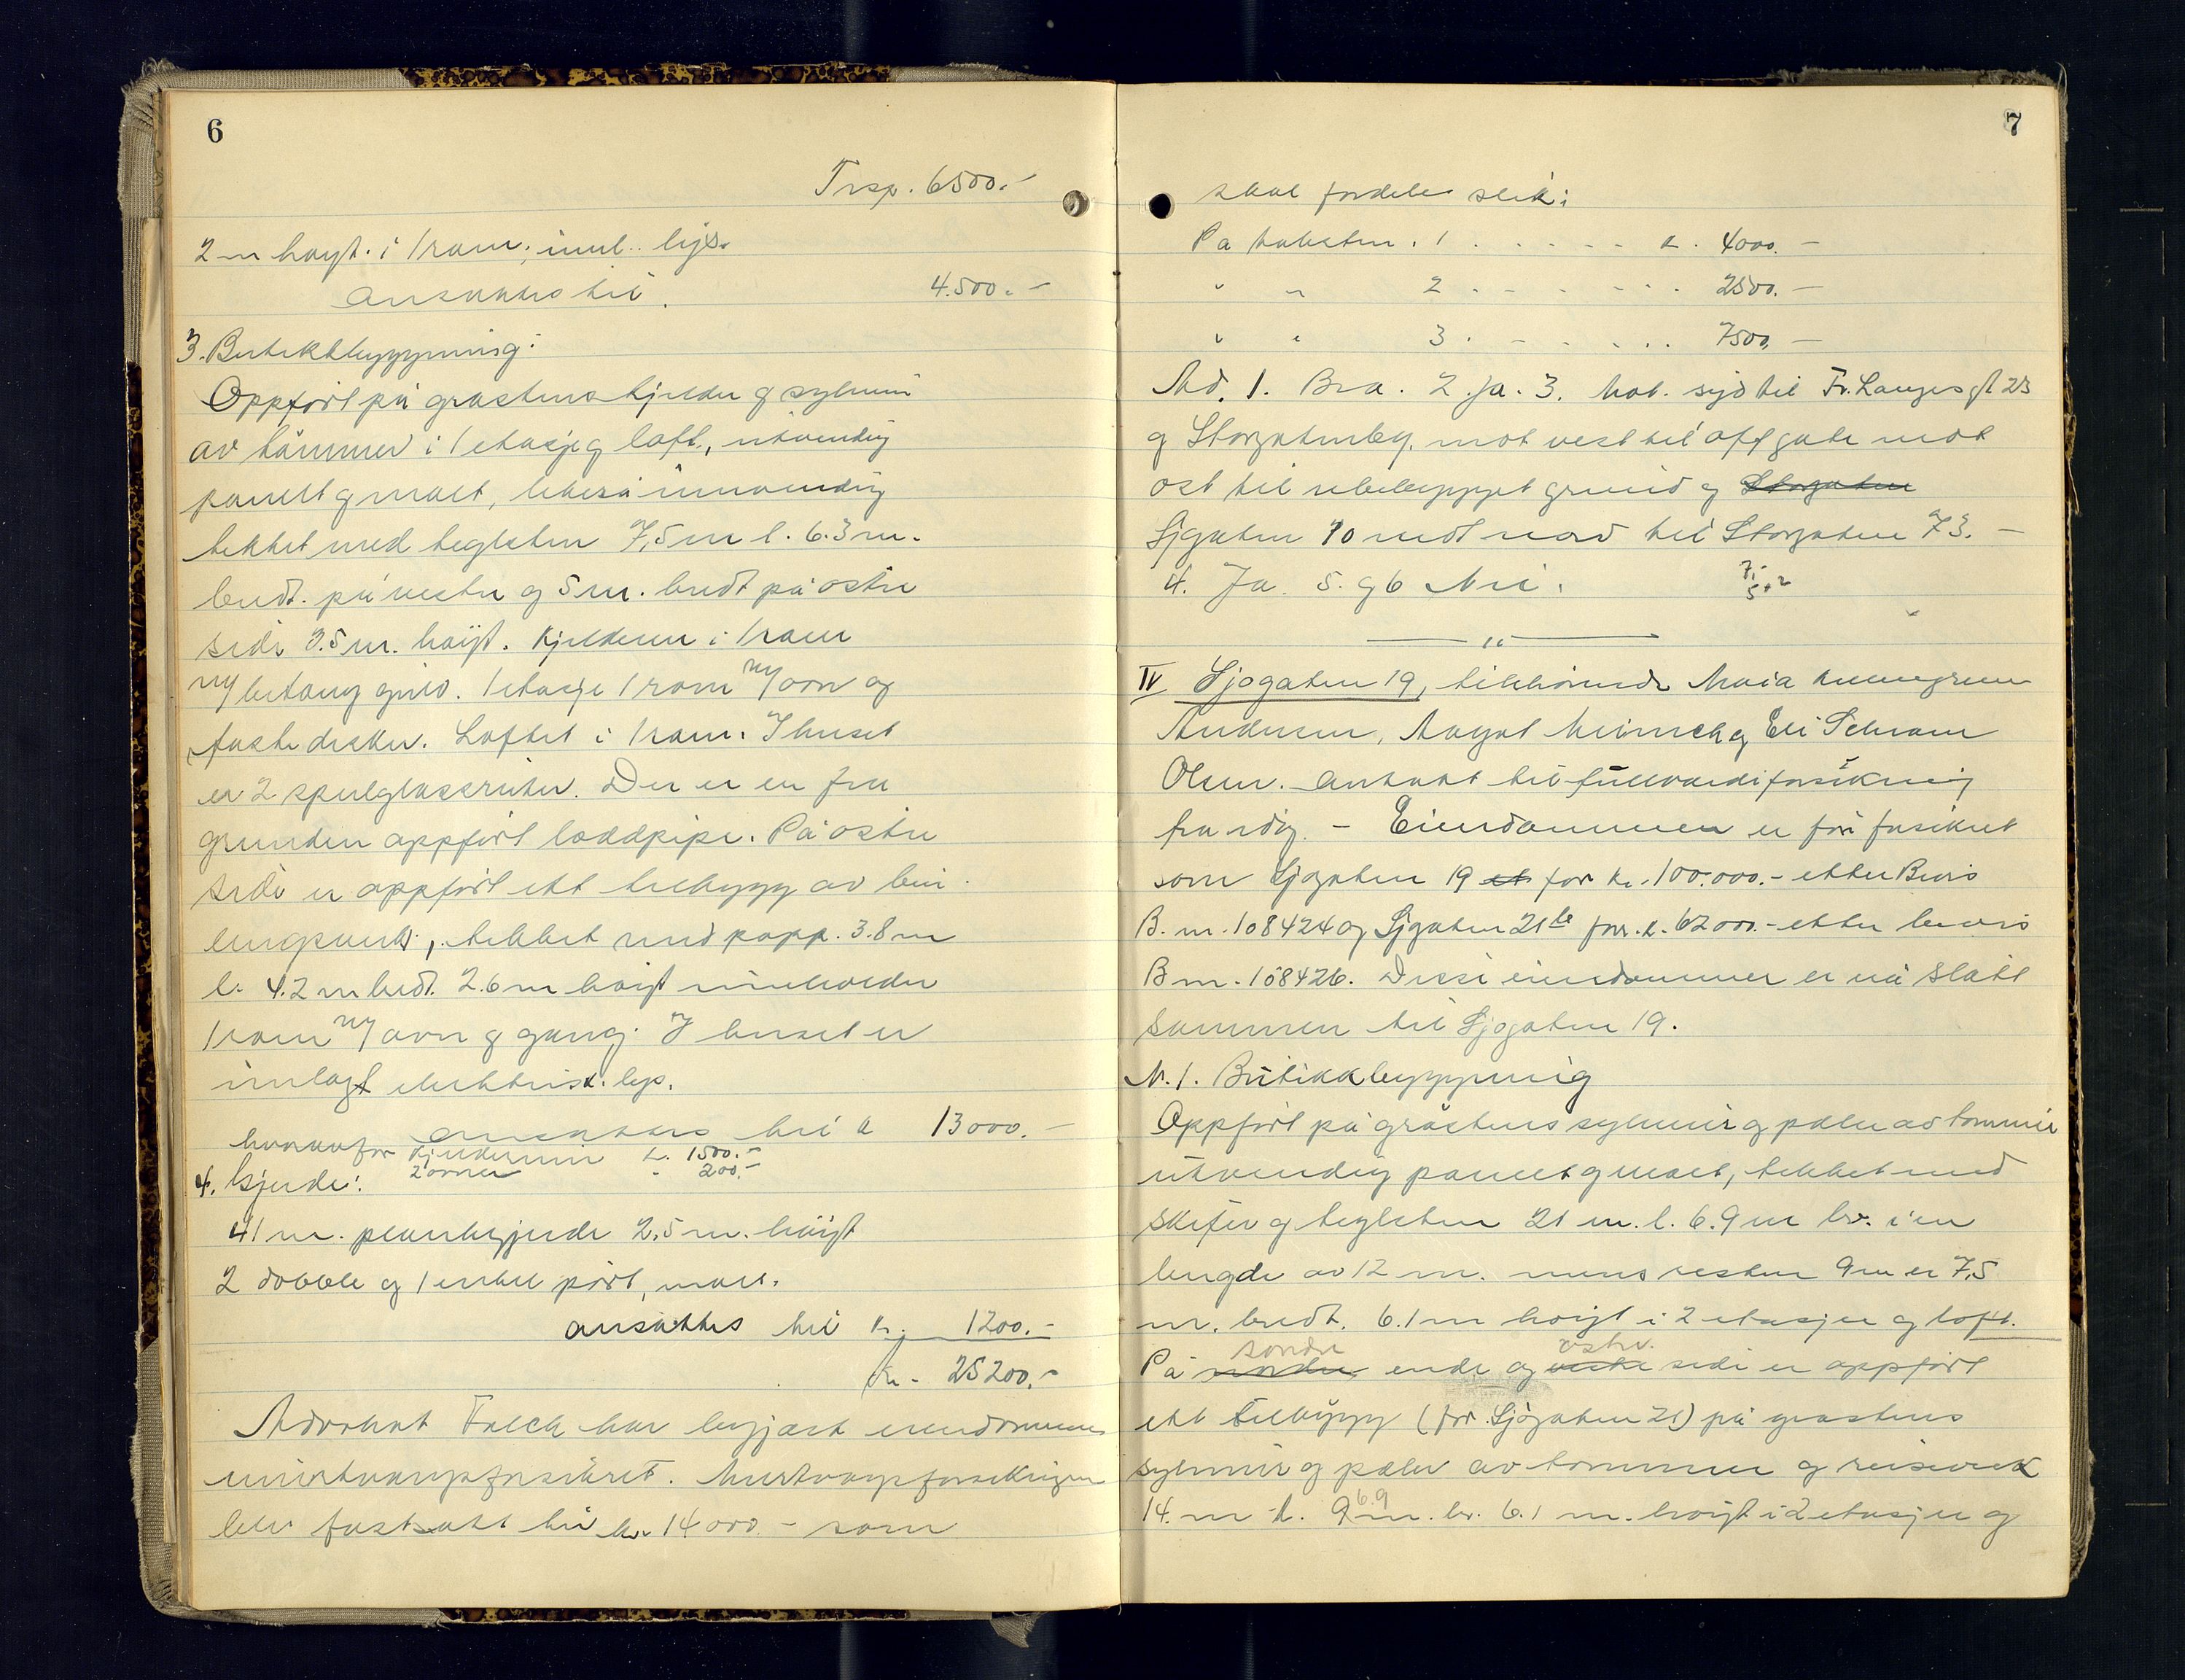 6
Trsp. 6500.-
2 m høyt. i 1 rom, innl. lys.
ansættes til 4.500.-
3. Butikkbyggning:
Oppfört på gråstens kjelder g sylmur
av tömmer i 1 etasje g loft, utvendig
panelt g malt, likeså innvendig
tekket med teglsten 7,5 m l. 6.3 m.
bredt. på vestre og 5 m. bredt på östre
side 3.5 m. höijt. Kjelderen i 1 rom
m/ betong gulv. 1 etasje 1 rom m/ ovn og
faste disker. Loftet i 1 rom. I huset
er 2 speilglassruter. Der er en fra
grunden oppfört loddpipe. På östre
side er oppfört ett tilbygg av bin-
ingsverk, tekket med papp. 3.8 m
l. 4.2 m bredt. 2.6 m höijt inneholder
1 rom m/ ovn g gang. I huset er
innlagt elektrisk. lys.
ansettes til k 13000.-
hvorav for kjellermur k. 1500.-
2 ovner - 200.-
4. Gjerde:
41 m. plankegjerde 2,5 m. höijt
2 dobble og 1 enkel port, malt.
ansættes til kr. 1200.-
Kr. 25200.-
Advokat Falch har begjært eiendommen
merkrigsforsikret. Murtvangsforsikringen
blir fastsatt til kr. 14000.- som
7
skal fordeles slik:
På takstnr. 1 . . . . . k. 4000.-
" " 2 . . . . . . 2500.-
" " 3 . . . . . . 7500,-
Ad. 1. Bra. 2. Ja. 3. Mot. syd til Fr. Langes gt 23
g Storgatenby. mot vest til off gate mot
ost til ubebygget grund g Storgaten
Sjgaten 10 mot nord til Storgaten 73. -
4. Ja. 5. g 6 Nei. 7,- 5,2
"
IV Sjøgaten 19, tilhörende Maia
Andersen, Aagot g Eli Schram
Olsen. Antatt til fullverdiforsikring
fra idag. - Eiendommen er för forsikret
som Sjøgaten 19 et for kr. 100.000.- etter Bevis
B. nr. 108424 og Sjgaten 21 b for k. 62000.- etter bevis
B nr. 108426. Disse eiendommer er nå slått
sammen til Sjøgaten 19.
N. 1. Butikkbyggning
Oppfört på gråstens sylmur g pæler av tömmer
utvendig panelt g malt, tekket med
skifer og teglsten 21 m. l. 6.9 m br. i en
lengde av 12 m. mens resten 9 m er 7,5
m. bredt. 6.1 m höijt i 2 etasjer g loft.
söndre östre.
På nordre ende og vestre side er oppfört
ett tilbygg (för Sjögaten 21) på gråstens
sylmur og pæler av tömmer g reisverk
6.9
14. m l. 9 m. br. 6.1 m. höijt i 2 etasjer g